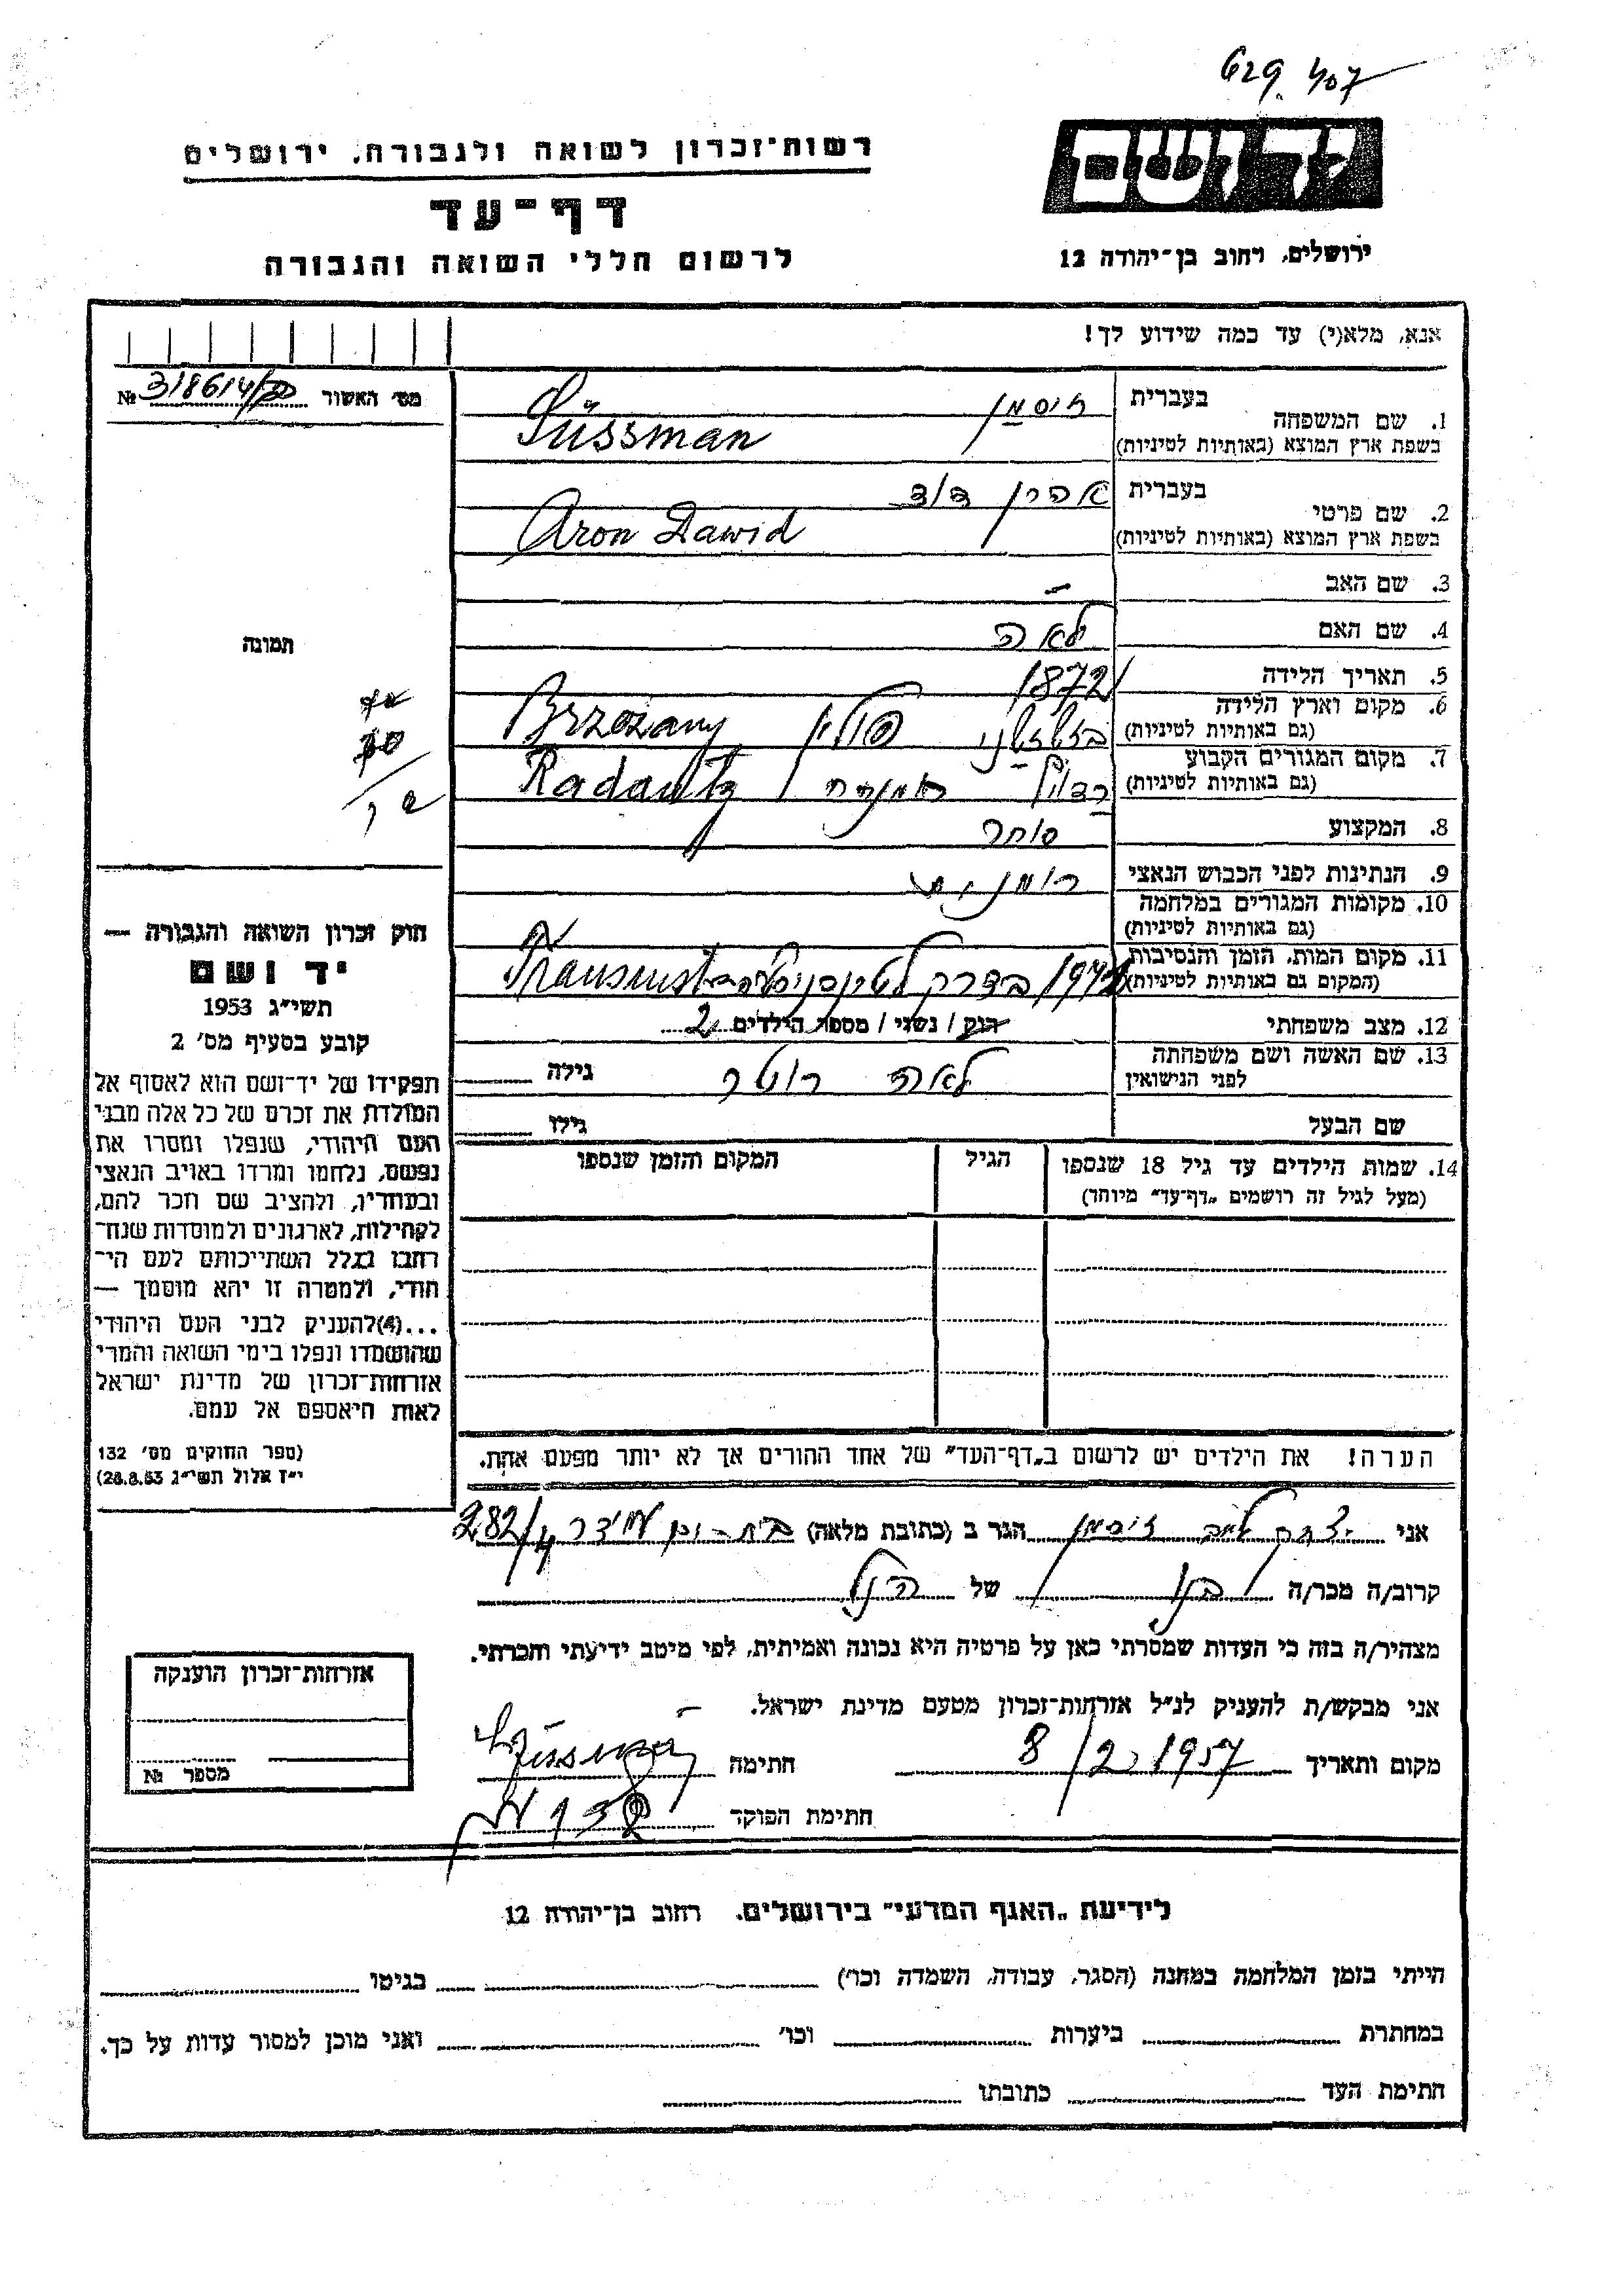 רשות־זכרון לשואה ולגבורה, ירושלים
דף־עד
לרשום חללי השואה והגבורה
יד ושם
ירושלים, רחוב בן־יהודה 12
אנא, מלא(י) עד כמה שידוע לך!
מס׳ האשור № 318614
1. שם המשפחה
בעברית זוסמן
בשפת ארץ המוצא (באותיות לטיניות) Süssman
2. שם פרטי
בעברית אהרן דוד
בשפת ארץ המוצא (באותיות לטיניות) Aron Dawid
3. שם האב —
4. שם האם לאה
5. תאריך הלידה 1872
6. מקום וארץ הלידה
(גם באותיות לטיניות) פולין Brzezany
7. מקום המגורים הקבוע
(גם באותיות לטיניות) Radautz
8. המקצוע סוחר
9. הנתינות לפני הכבוש הנאצי
10. מקומות המגורים במלחמה
(גם באותיות לטיניות)
11. מקום המות, הזמן והנסיבות
(המקום גם באותיות לטיניות) בדרך
12. מצב משפחתי רוק / נשוי / מספר הילדים 2
13. שם האשה ושם משפחתה
לפני הנישואין לאה רוטר גילה
שם הבעל גילו
14. שמות הילדים עד גיל 18 שנספו
(מעל לגיל זה רושמים „דף־עד” מיוחד)
הגיל
המקום והזמן שנספו
הערה! את הילדים יש לרשום ב„דף־העד” של אחד ההורים אך לא יותר מפעם אחת.
תמונה
חוק זכרון השואה והגבורה —
יד ושם
תשי״ג 1953
קובע בסעיף מס׳ 2
תפקידו של יד־ושם הוא לאסוף אל
המולדת את זכרם של כל אלה מבני
העם היהודי, שנפלו ומסרו את
נפשם, נלחמו ומרדו באויב הנאצי
ובעוזריו, ולהציב שם וזכר להם,
לקהילות, לארגונים ולמוסדות שנח־
רבו בגלל השתייכותם לעם הי־
הודי, ולמטרה זו יהא מוסמך —
...(4)להעניק לבני העם היהודי
שהושמדו ונפלו בימי השואה והמרי
אזרחות־זכרון של מדינת ישראל
לאות היאספם אל עמם.
(ספר החוקים מס׳ 132
י״ז אלול תשי״ג 28.8.53)
אני יצחק זוסמן הגר ב (כתובת מלאה) 282/4
קרוב/ה מכר/ה בנו של הנ״ל
מצהיר/ה בזה כי העדות שמסרתי כאן על פרטיה היא נכונה ואמיתית, לפי מיטב ידיעתי והכרתי.
אני מבקש/ת להעניק לנ״ל אזרחות־זכרון מטעם מדינת ישראל.
מקום ותאריך 8/2.1957 חתימה
חתימת הפוקד
אזרחות־זכרון הוענקה
מספר №
לידיעת „האגף המדעי” בירושלים. רחוב בן־יהודה 12
הייתי בזמן המלחמה במחנה (הסגר, עבודה, השמדה וכו׳) בגיטו
במחתרת ביערות וכו׳ ואני מוכן למסור עדות על כך.
חתימת העד כתובתו